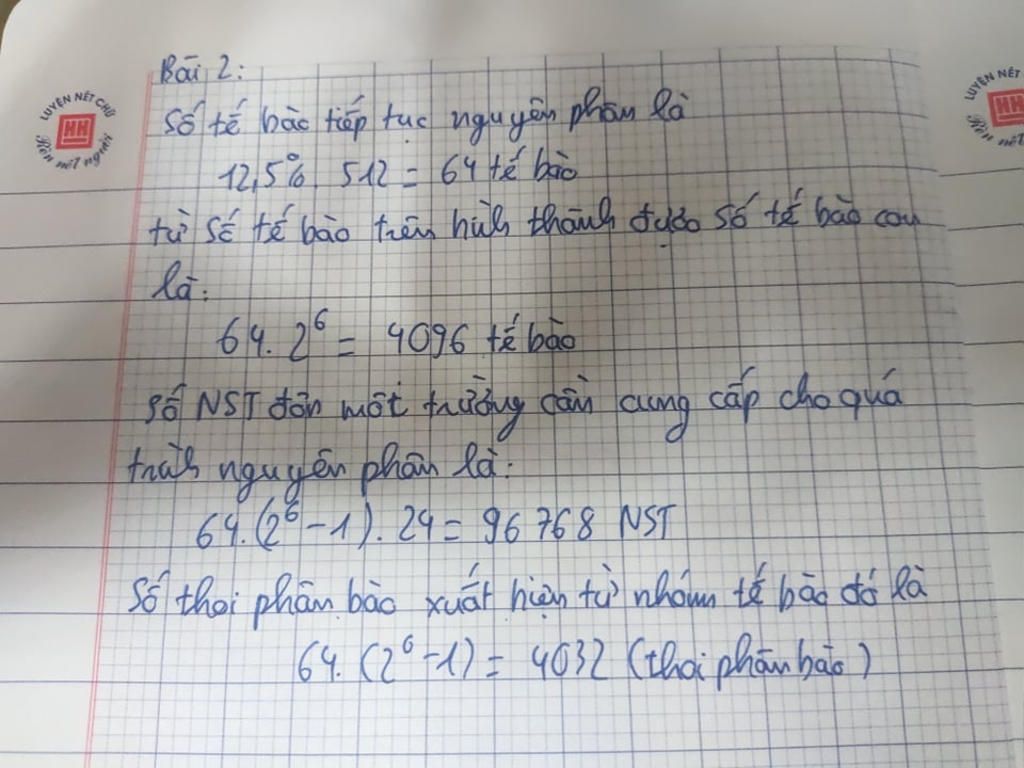 Bài 2:
LUYỆN NÉT CHỮ
HH
Rèn nết người
LUYỆN NÉT
HH
Rèn nết
Số tế bào tiếp tục nguyên phân là
12,5%. 512 = 64 tế bào
từ số tế bào trên hình thành được số tế bào con
là:
64. 2⁶ = 4096 tế bào
Số NST đơn môi trường cần cung cấp cho quá
trình nguyên phân là:
64.(2⁶ - 1). 24 = 96 768 NST
Số thoi phân bào xuất hiện từ nhóm tế bào đó là
64. (2⁶ - 1) = 4032 (thoi phân bào)